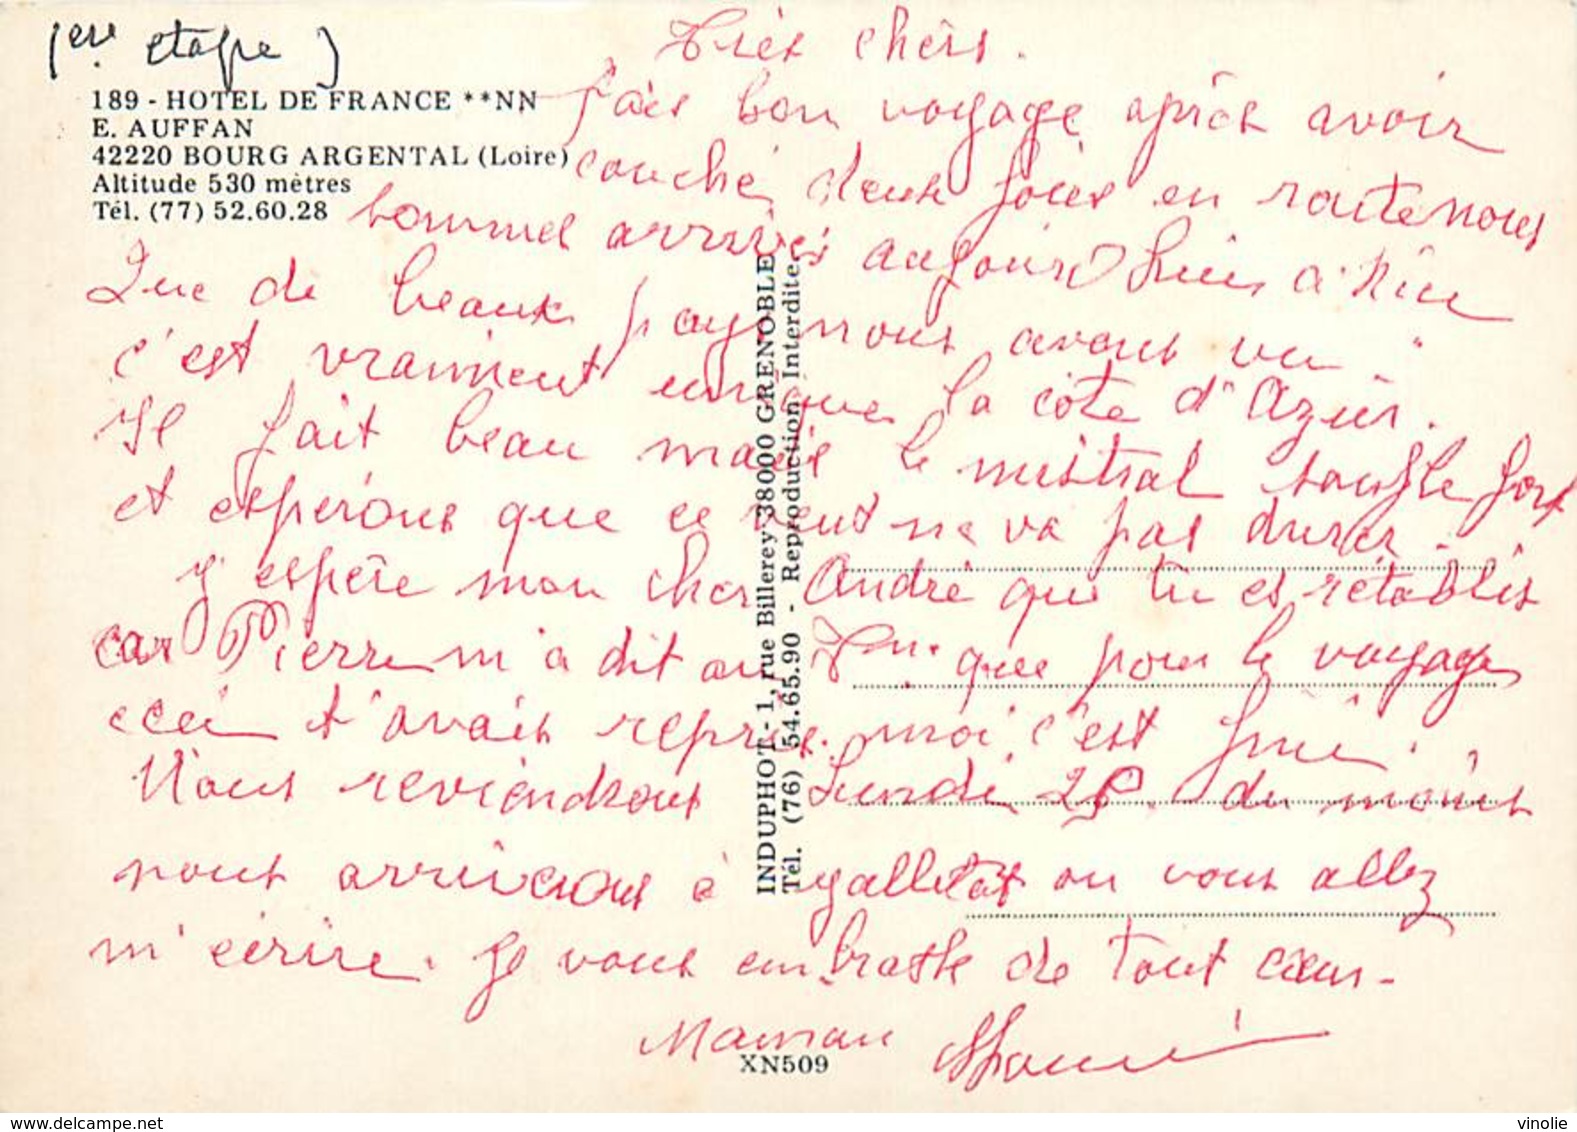 1ère étape)
189 - HOTEL DE FRANCE **NN
E. AUFFAN
42220 BOURG ARGENTAL (Loire)
Altitude 530 mètres
Tél. (77) 52.60.28
INDUPHOT - 1, rue Billerey 38000 GRENOBLE
Tél. (76) 54.65.90 - Reproduction Interdite
Très chers.
fais bon voyage après avoir
couché deux fois en route nous
sommes arrivés aujourd'hui à
Que de beaux pays nous avons vu.
c'est vraiment unique la côte d'Azur.
Il fait beau mais le mistral souffle fort
et espérons que ce vent ne va pas durer.
J'espère mon cher André que tu es rétablis
car Pierre m'a dit au que pour le voyage
ceci t'avait repris. moi c'est fini.
Nous reviendrons Lundi du mois
nous arriverons à ou vous allez
m'écrire. Je vous embrasse de tout cœur -
Maman
XN509
vinolie